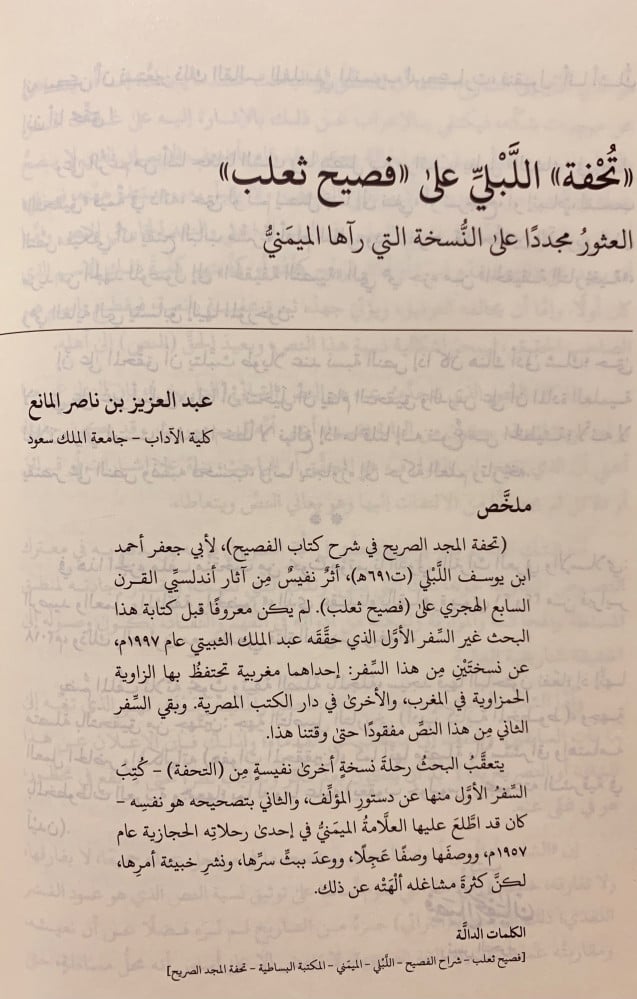 «تُحْفة» اللَّبْليِّ على «فصيح ثعلب»
العثورُ مجددًا على النُّسخة التي رآها الميمَنيُّ
عبد العزيز بن ناصر المانع
كلية الآداب – جامعة الملك سعود
ملخَّص
(تحفة المجد الصريح في شرح كتاب الفصيح)، لأبي جعفر أحمد
ابن يوسف اللَّبْلي (ت٦٩١هـ)، أثرٌ نفيسٌ مِن آثار أندلسيِّي القرن
السابع الهجري على (فصيح ثعلب). لم يكن معروفًا قبل كتابة هذا
البحث غير السِّفر الأوَّل الذي حقَّقَه عبد الملك الثبيتي عام ١٩٩٧م،
عن نسختَيْنِ مِن هذا السِّفر: إحداهما مغربية تحتفظُ بها الزاوية
الحمزاوية في المغرب، والأخرىٰ في دار الكتب المصرية. وبقي السِّفر
الثاني مِن هذا النصِّ مفقودًا حتىٰ وقتنا هذا.
يتعقَّبُ البحثُ رحلةَ نسخةٍ أخرىٰ نفيسةٍ مِن (التحفة) – كُتِبَ
السِّفرُ الأوَّل منها عن دستورِ المؤلِّف، والثاني بتصحيحه هو نفسِه –
كان قد اطَّلعَ عليها العلَّامةُ الميمَنيُّ في إحدىٰ رحلاتِه الحجازية عام
١٩٥٧م، ووصفَها وصفًا عَجِلًا، ووعدَ ببثِّ سرِّها، ونشرِ خبيئة أمرِها،
لكنَّ كثرةَ مشاغله ألْهَتْه عن ذلك.
الكلمات الدالَّة
[فصيح ثعلب – شراح الفصيح – اللَّبْلي – الميمَني – المكتبة البساطية – تحفة المجد الصريح]